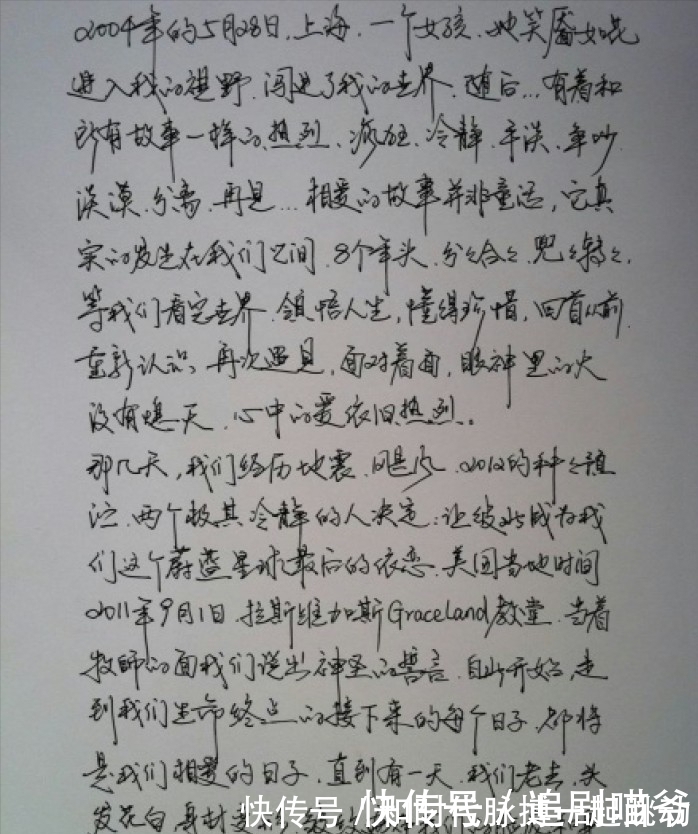 2004年的5月28日.上海.一个女孩.她笑靥如花
进入我的视野.闯进了我的世界.随后...有着和
所有故事一样的热烈、疯狂、冷静.平淡.争吵
淡漠.分离.再见...相爱的故事并非童话，它真
实的发生在我们之间.8个年头.分分合合.兜兜转转.
等我们看完世界.领悟人生，懂得珍惜，回首从前
重新认识.再次遇见，面对着面，眼神里的火
没有熄灭.心中的爱依旧热烈..
那几天，我们经历地震.飓风.2012的种种预
言.两个极其冷静的人决定:让彼此成为我
们这个蔚蓝星球最后的依恋.美国当地时间
2011年9月1日.拉斯维加斯Graceland教堂.当着
牧师的面我们说出神圣的誓言.自此开始,走
到我们生命终点的接下来的每个日子.都将
是我们相爱的日子.直到有一天.我们老去.头
发花白.身
快传号/追剧喵爷
快传号/和时代脉搏一起跳动